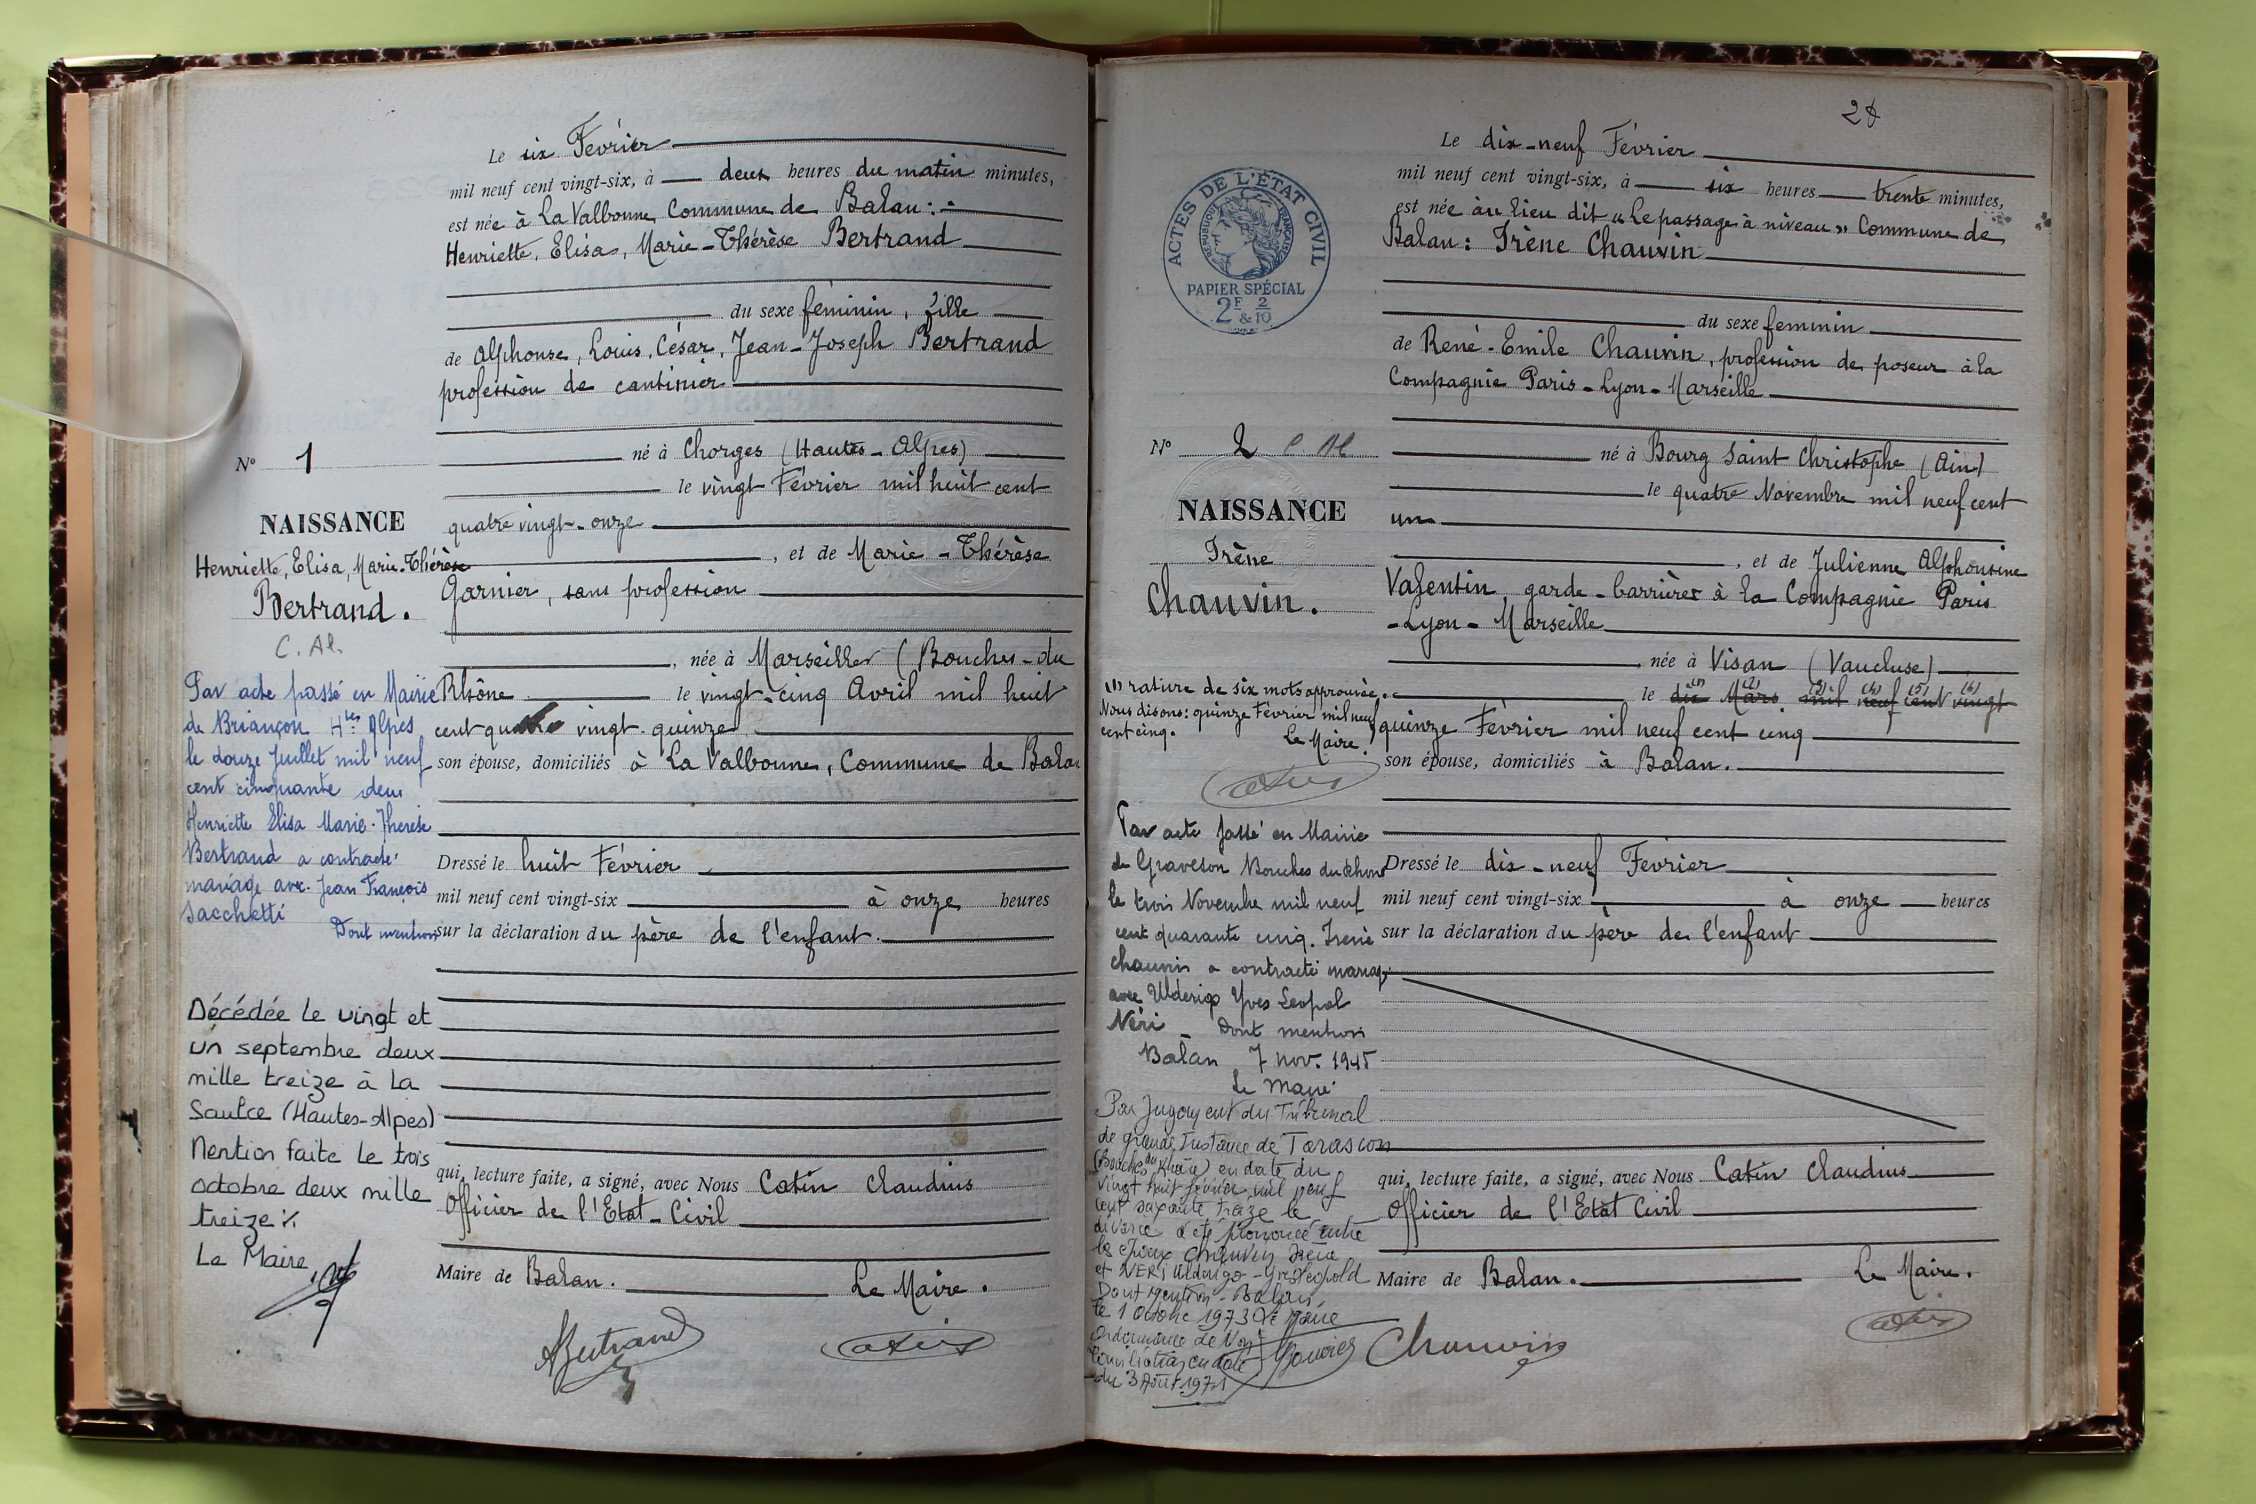 Le six Février
mil neuf cent vingt-six, à deux heures du matin minutes,
est née à La Valbonne, Commune de Balan :
Henriette, Elisa, Marie-Thérèse Bertrand
du sexe féminin, fille
de Alphonse, Louis, César, Jean-Joseph Bertrand
profession de cantinier
né à Chorges (Hautes-Alpes)
le vingt Février mil huit cent
quatre vingt-onze
, et de Marie-Thérèse
Garnier, sans profession
, née à Marseille (Bouches-du
Rhône le vingt-cinq Avril mil huit
cent quatre vingt quinze
son épouse, domiciliés à La Valbonne, Commune de Balan
Dressé le huit Février
mil neuf cent vingt-six à onze heures
sur la déclaration du père de l'enfant.
qui, lecture faite, a signé, avec Nous Catin Claudius
Officier de l'Etat-Civil
Maire de Balan. Le Maire.
ABertrand
Catin
N° 1
NAISSANCE
Henriette, Elisa, Marie-Thérèse
Bertrand.
C. Al.
Par acte passé en Mairie
de Briançon Htes Alpes
le douze Juillet mil neuf
cent cinquante deux
Henriette Elisa Marie-Thérèse
Bertrand a contracté
mariage avec Jean François
Sacchetti
Dont mention
Décédée le vingt et
un septembre deux
mille treize à La
Saulce (Hautes-Alpes)
Mention faite le trois
octobre deux mille
treize ./.
Le Maire,
2
Le dix-neuf Février
mil neuf cent vingt-six, à six heures trente minutes,
est née au lieu dit "Le passage à niveau" Commune de
Balan : Irène Chauvin
du sexe féminin
de René-Emile Chauvin, profession de poseur à la
Compagnie Paris-Lyon-Marseille
né à Bourg Saint Christophe (Ain)
le quatre Novembre mil neuf cent
un
, et de Julienne Alphonsine
Valentin, garde-barrières à la Compagnie Paris
-Lyon-Marseille
, née à Visan (Vaucluse)
le dix (1) Mars (2) mil (3) neuf (4) cent (5) vingt (6)
quinze Février mil neuf cent cinq
son épouse, domiciliés à Balan.
Dressé le dix-neuf Février
mil neuf cent vingt-six à onze heures
sur la déclaration du père de l'enfant
qui, lecture faite, a signé, avec Nous Catin Claudius
Officier de l'Etat Civil
Maire de Balan. Le Maire.
Chauvin
Catin
ACTES DE L'ÉTAT CIVIL
RÉPUBLIQUE FRANÇAISE
PAPIER SPÉCIAL
2F & 2/10
N° 2
NAISSANCE
Irène
Chauvin.
(1) rature de six mots approuvée.
Nous disons : quinze Février mil neuf
cent cinq.
Le Maire
Catin
Par acte passé en Mairie
de Graveson Bouches du Rhône
le trois Novembre mil neuf
cent quarante cinq. Irène
Chauvin a contracté mariage
avec Ulderigo Yves Leopol
Néri - Dont mention
Balan 7 nov. 1945
Le Maire
Par Jugement du Tribunal
de grande Instance de Tarascon
(Bouches du Rhône) en date du
vingt huit février mil neuf
cent soixante treize le
divorce a été prononcé entre
les époux Chauvin Irène
et NERI Ulderigo-Yves Léopold
Dont mention - Balan
le 1 Octobre 1973 Le Maire
Ordonnance de Non
Conciliation en date
du 3 Août 1971
Bouvier